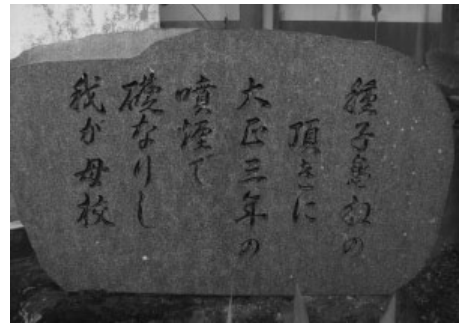 種子島の
頂きに
大正三年の
噴煙で
礎なりし
我が母校